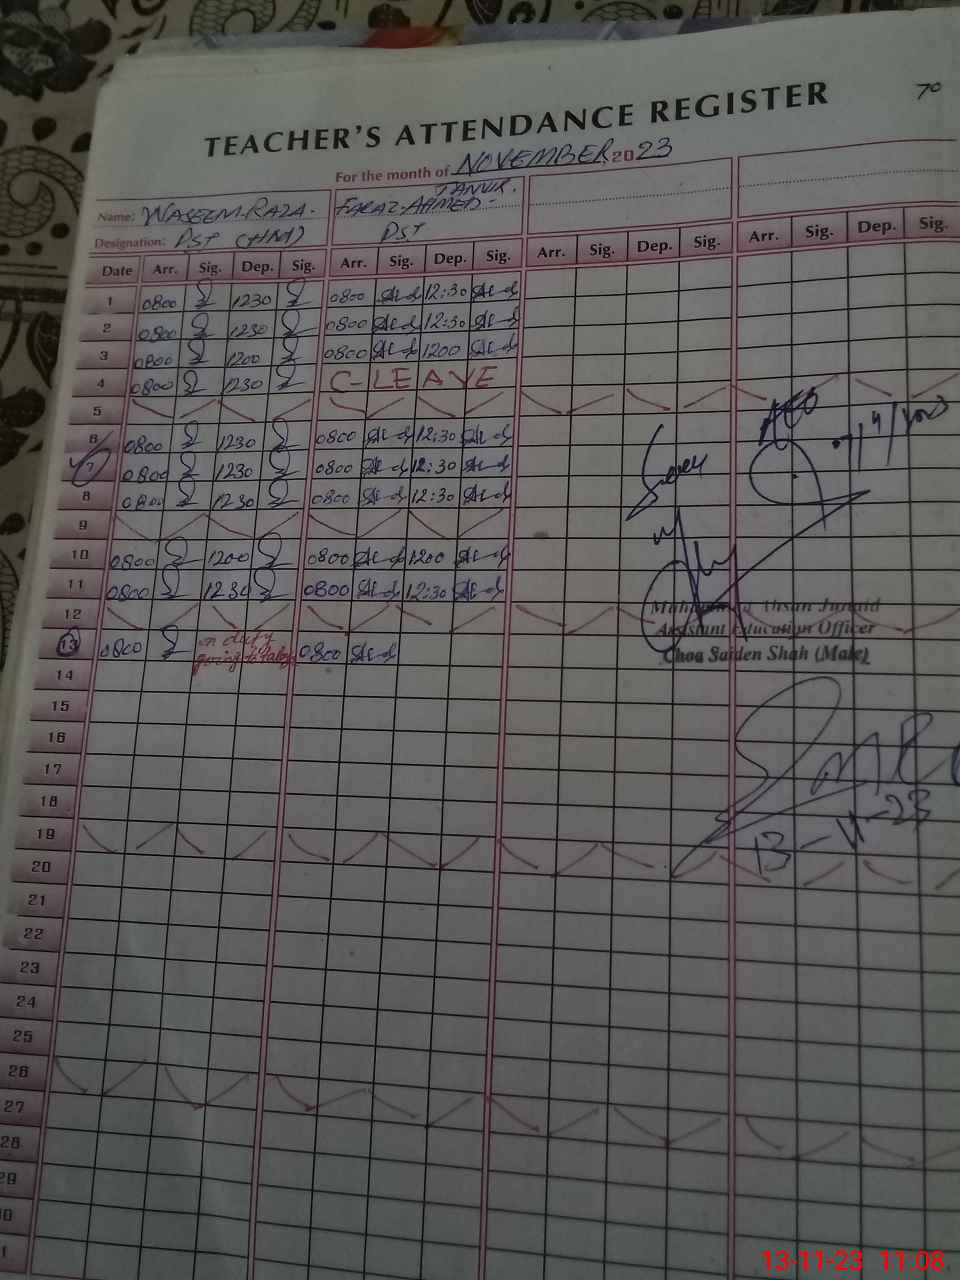 70
TEACHER'S ATTENDANCE REGISTER
For the month of NOVEMBER 2023
Name: WASEEM RAZA. FARAZ AHMED TANVIR.
Designation: PST (HM) PST
Date Arr. Sig. Dep. Sig. Arr. Sig. Dep. Sig. Arr. Sig. Dep. Sig. Arr. Sig. Dep. Sig.
1 0800 1230 0800 12:30
2 0800 1230 0800 12:30
3 0800 1200 0800 1200
4 0800 1230 C-LEAVE
5
6 0800 1230 0800 12:30
7 0800 1230 0800 12:30
8 0800 1230 0800 12:30
9
10 0800 1200 0800 1200
11 0800 1230 0800 12:30
12
13 0800 on duty going to 0800
14
15
16
17
18
19
20
21
22
23
24
25
26
27
28
29
30
31
AEO
Ahsan Junaid
Assistant Education Officer
Choa Saiden Shah (Male)
13-11-23
13-11-23 11:08